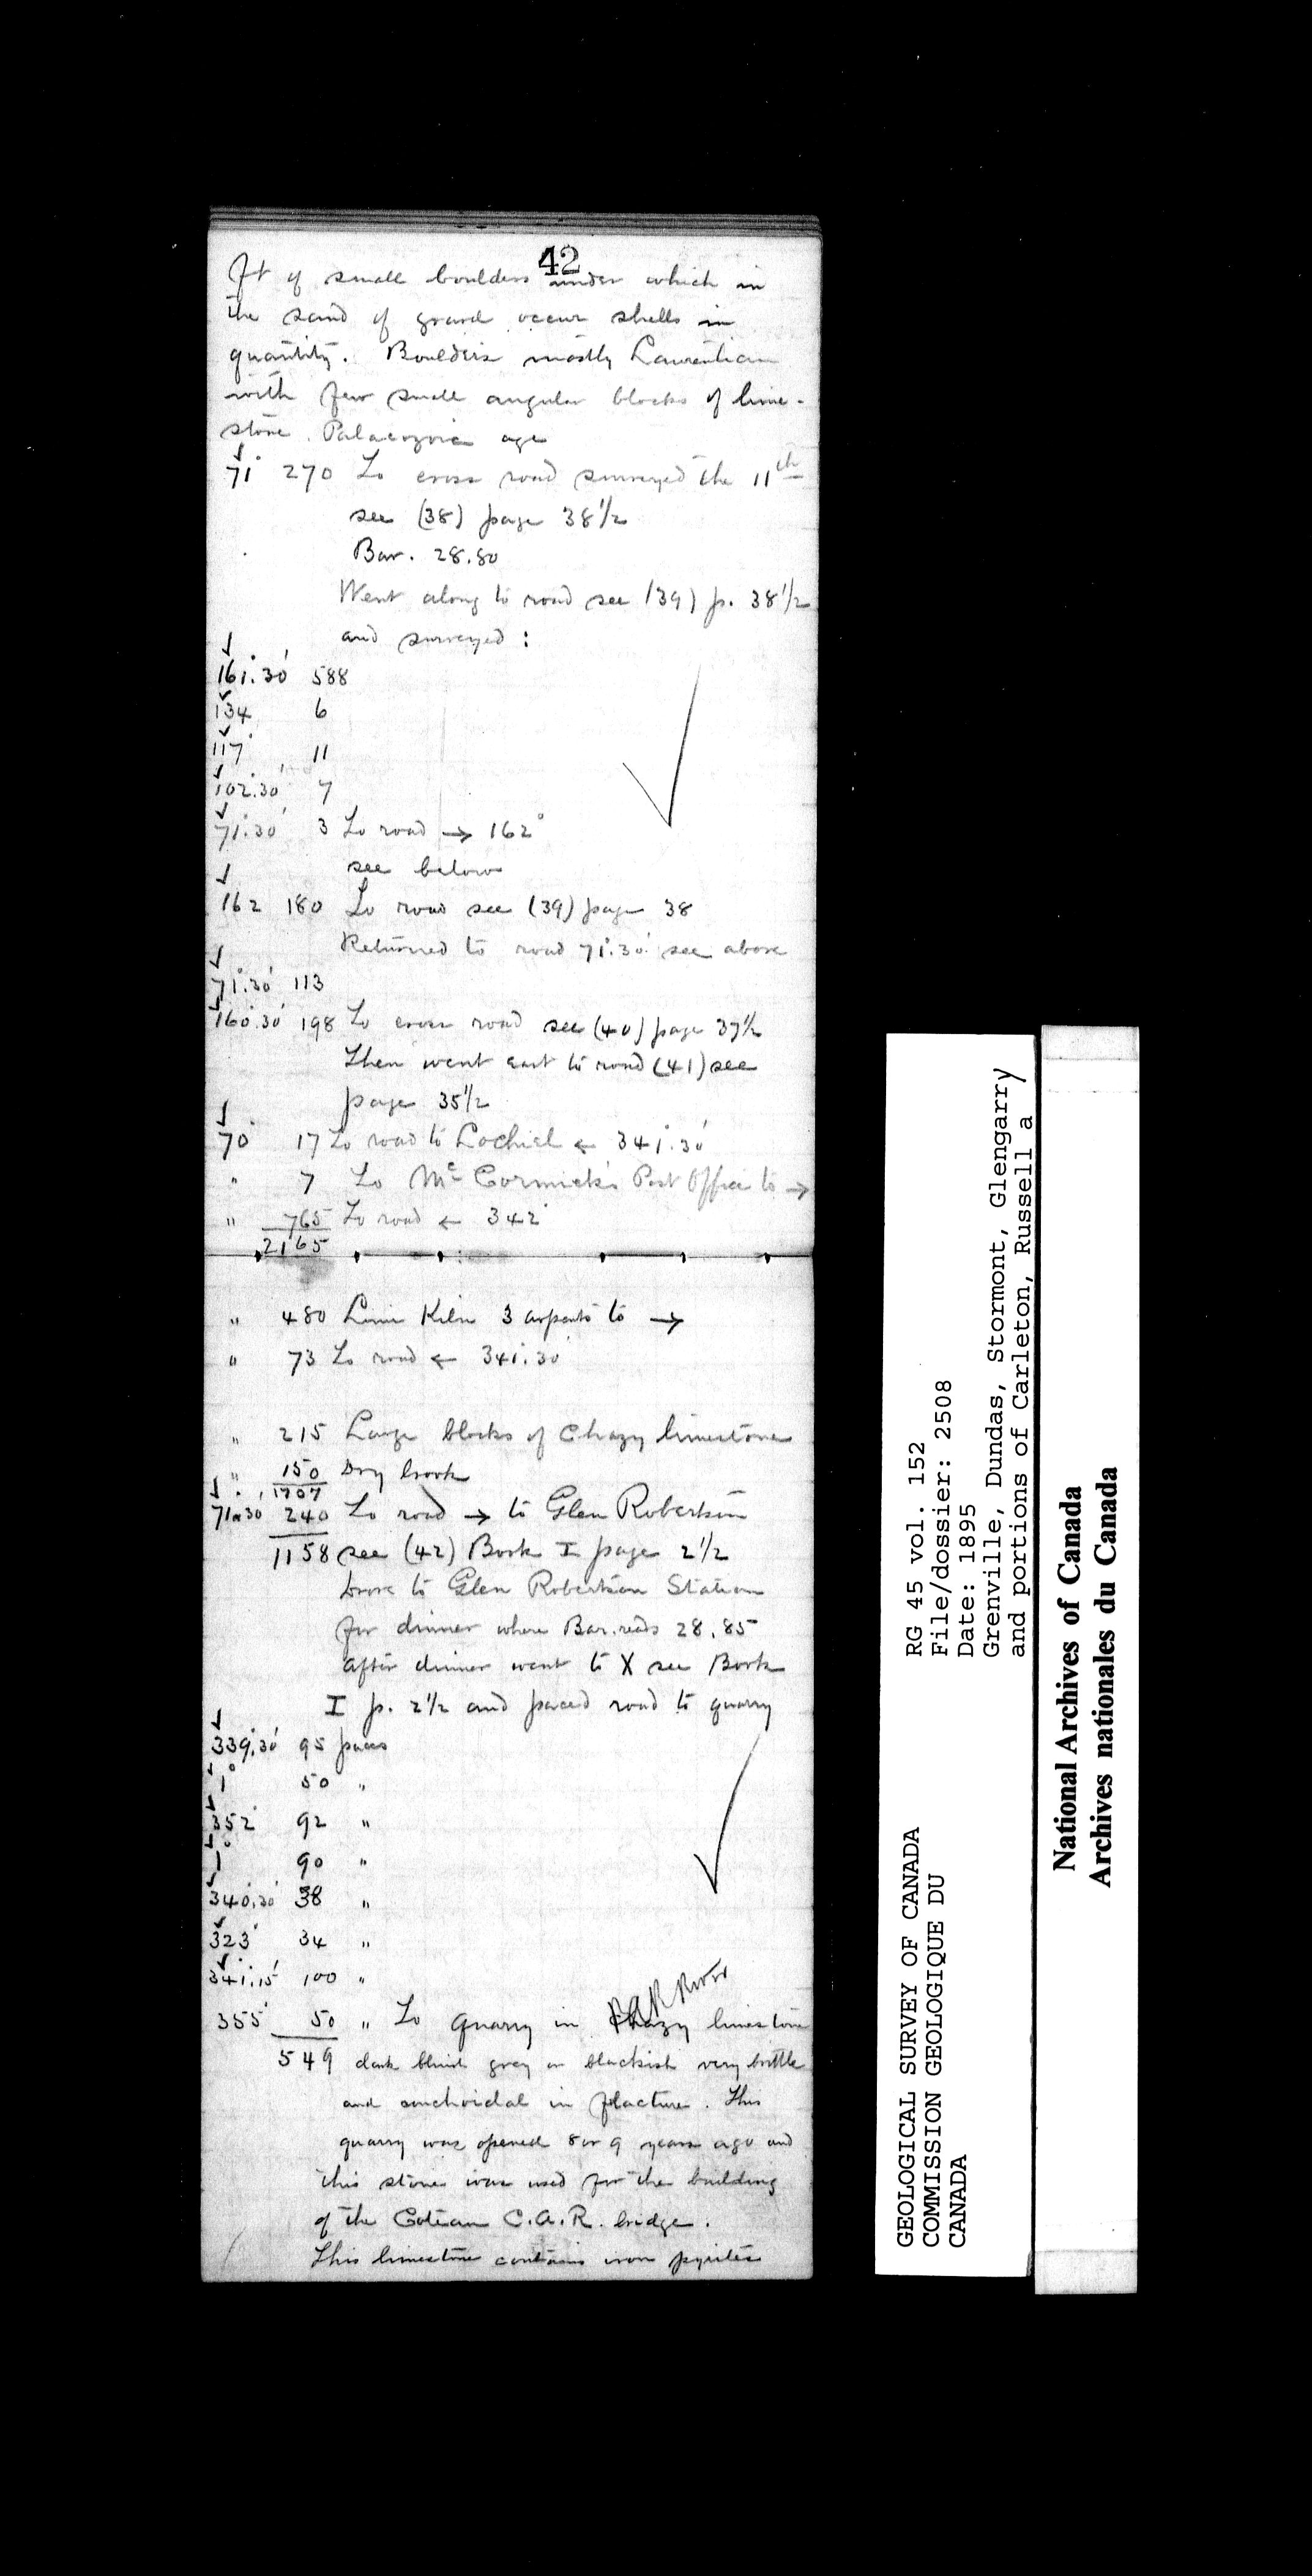 42
ft of small boulders under which in
the sand of gravel occur shells in
quantity. Boulders mostly Laurentian
with few small angular blocks of lime-
stone. Palaeozoic age
71° 270 To cross road surveyed the 11th
see (38) page 38 1/2
Bar. 28.80
Went along to road see (39) p. 38 1/2
and surveyed:
161°.30' 588
134 6
117° 11
102°.30' 7
71°.30' 3 To road → 162°
see below
162 180 To road see (39) page 38
Returned to road 71°.30' see above
71°.30' 113
160°.30' 198 To cross road see (40) page 37 1/2
Then went east to road (41) see
page 35 1/2
70° 17 To road to Lochiel ← 341°.30'
" 7 To McCormick's Post Office to →
" 765 To road ← 342°
2165
" 480 Lime Kiln 3 arpents to →
" 73 To road ← 341°.30'
" 215 Large blocks of Chazy limestone
" 150 Dry brook
1707
71°.30 240 To road → to Glen Robertson
1158 see (42) Book I page 2 1/2
Drove to Glen Robertson Station
for dinner where Bar. reads 28.85
After dinner went to X see Book
I p. 2 1/2 and paced road to quarry
339°.30' 95 paces
1° 50 "
352° 92 "
1° 90 "
340°.30' 38 "
323° 34 "
341°.15' 100 "
B&R River
355° 50 " To quarry in Chazy limestone
549 dark bluish grey or blackish very brittle
and conchoidal in fracture. This
quarry was opened 8 or 9 years ago and
this stone was used for the building
of the Coteau C.A.R. bridge.
This limestone contains iron pyrites
GEOLOGICAL SURVEY OF CANADA
COMMISSION GEOLOGIQUE DU
CANADA
RG 45 vol. 152
File/dossier: 2508
Date: 1895
Grenville, Dundas, Stormont, Glengarry
and portions of Carleton, Russell a
National Archives of Canada
Archives nationales du Canada